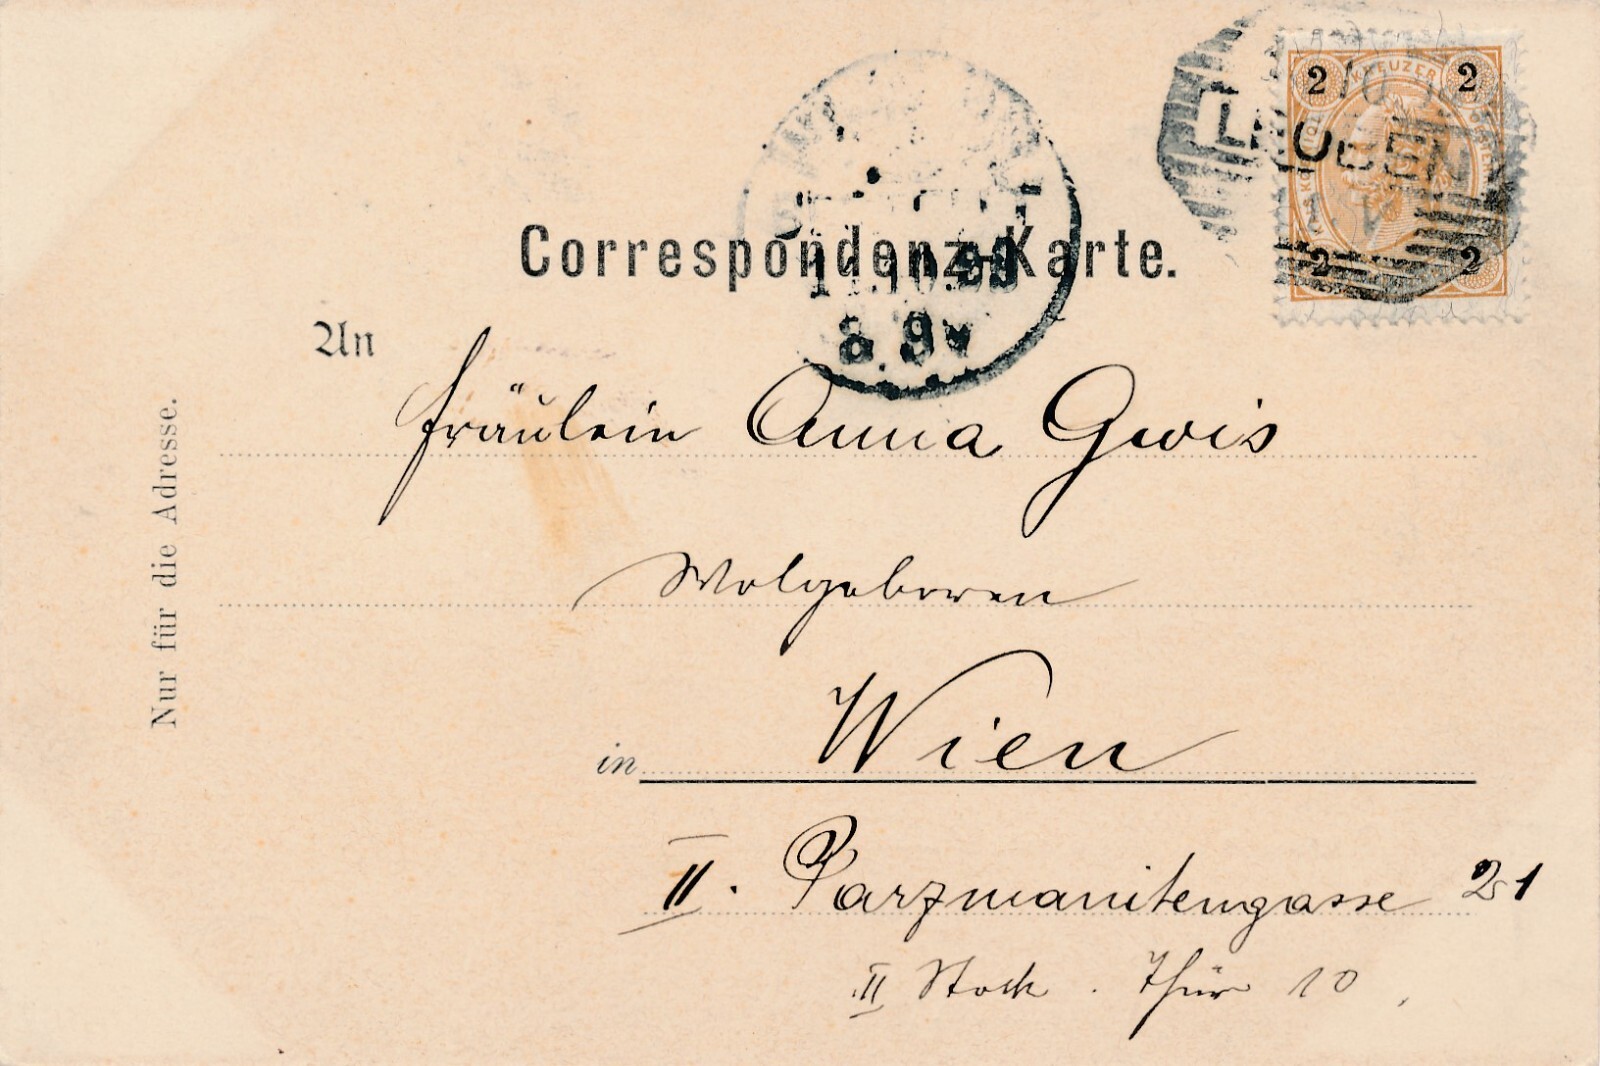 Correspondenz-Karte.
2 KREUZER 2
LEOBEN
2 2
10.98
8.9V
An
Fräulein Anna Gwis
Wolgeboren
in Wien
II. Pazmanitengasse 21
II Stock. Thür 10
Nur für die Adresse.